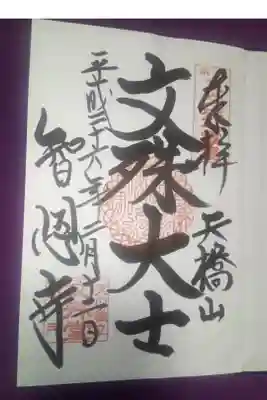 奉拝
天橋山
文殊大士
平成二十六年二月十二日
智恩寺